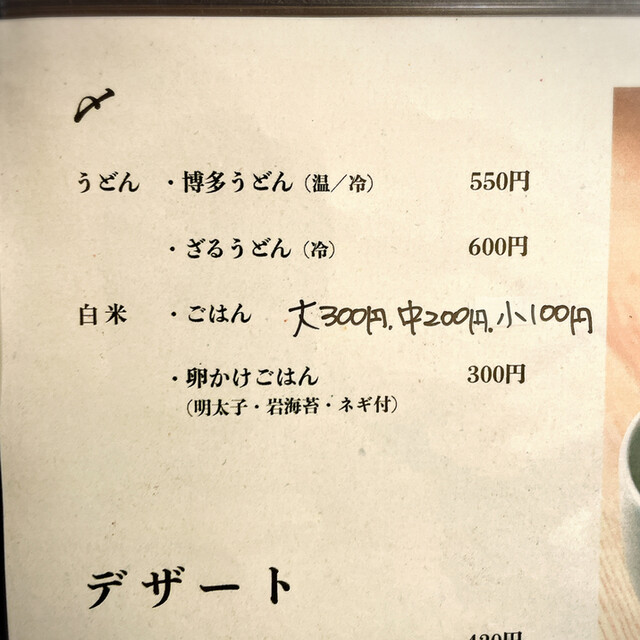 〆
うどん ・博多うどん（温／冷） 550円
・ざるうどん（冷） 600円
白米 ・ごはん 大300円,中200円,小100円
・卵かけごはん 300円
（明太子・岩海苔・ネギ付）
デザート